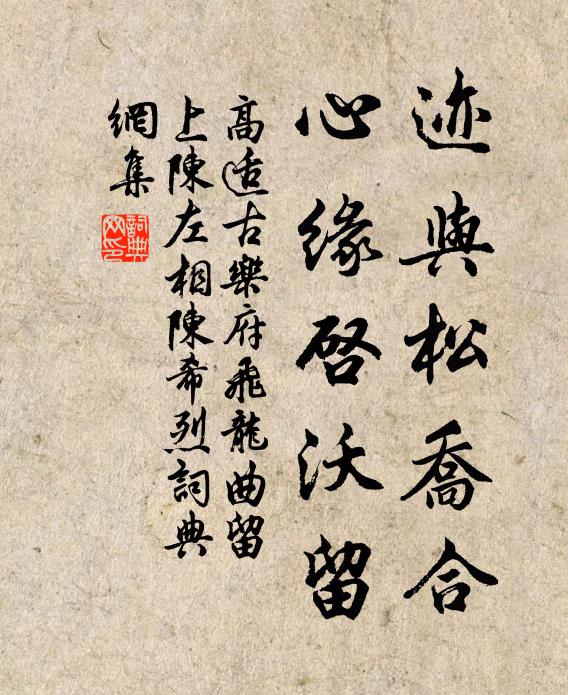 迹與松喬合
心緣啓沃留
高适古樂府飛龍曲留
上陳左相陳希烈詞典
網集
詞典
网印